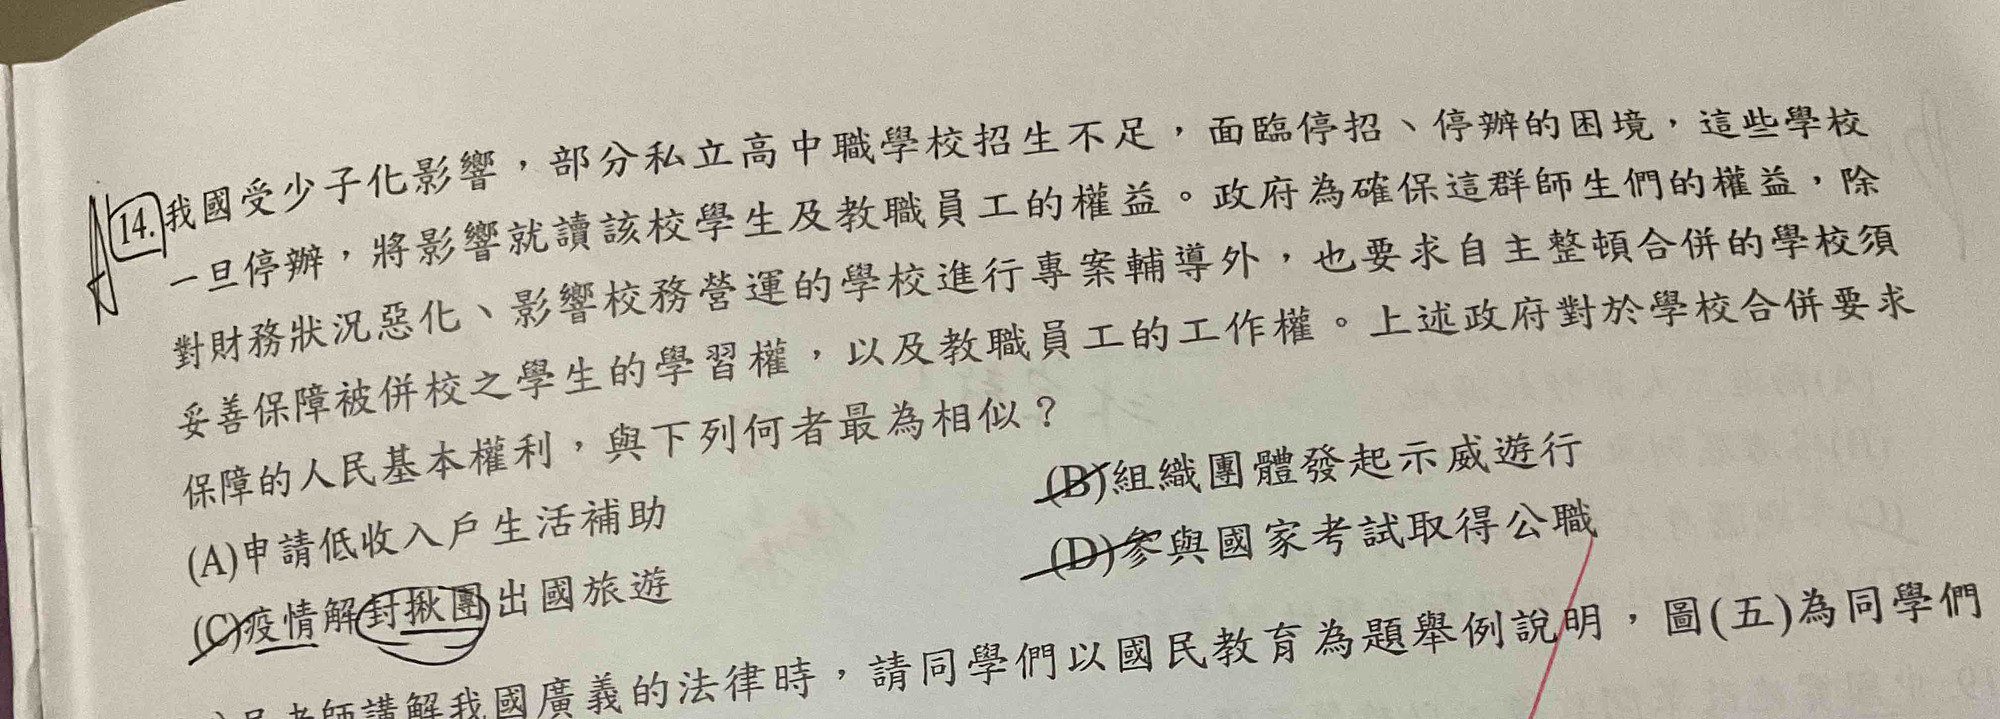 A 14.我國受少子化影響,部分私立高中職學校招生不足,面臨停招、停辦的困境,這些學校
一旦停辦,將影響就讀該校學生及教職員工的權益。政府為確保這群師生們的權益,除
對財務狀況惡化、影響校務營運的學校進行專案輔導外,也要求自主整頓合併的學校須
妥善保障被併校之學生的學習權,以及教職員工的工作權。上述政府對於學校合併要求
保障的人民基本權利,與下列何者最為相似?
(A)申請低收入戶生活補助 (B)組織團體發起示威遊行
(C)疫情解封揪團出國旅遊 (D)參與國家考試取得公職
老師講解我國廣義的法律時,請同學們以國民教育為題舉例說明,圖(五)為同學們